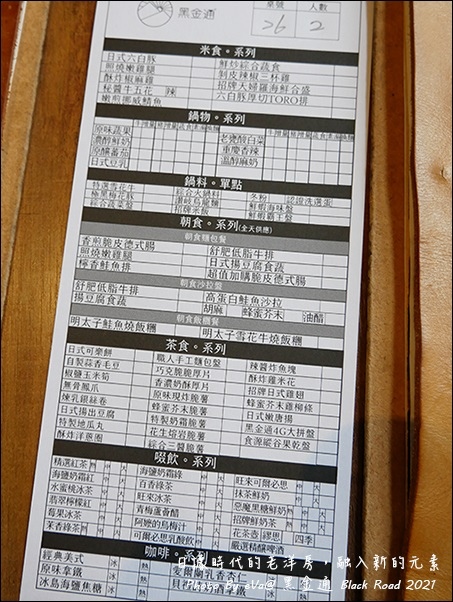 黑金通
桌號 人數
26 2
米食。系列
日式六白豚 鮮炒綜合蔬食
照燒嫩雞腿 剝皮辣椒三杯雞
酥炸椒麻雞 招牌大婦羅海鮮合盛
秘醬牛五花 辣 六白豚厚切TORO排
嫩煎挪威鯖魚
鍋物。系列
原味蔬果 老甕酸白菜
濃醇鮮奶 重慶香辣
原釀番茄 溫醇麻奶
日式豆乳
鍋料。單點
特選雪花牛 綜合火鍋料 冬粉 認證洗選蛋
極黑梅花豚 讚岐烏龍麵 鮮蝦海味盤
綜合蔬菜盤 招牌米飯 鮮蝦霸王盤
朝食。系列(全天供應)
朝食麵包餐
香煎脆皮德式腸 舒肥低脂牛排
照燒嫩雞腿 日式揚豆腐食蔬
檸香鮭魚排 超值加購脆皮德式腸
朝食沙拉盤
舒肥低脂牛排 高蛋白鮭魚沙拉
揚豆腐食蔬 胡麻 蜂蜜芥末 油醋
朝食飯糰餐
明太子鮭魚燒飯糰 明太子雪花牛燒飯糰
茶食。系列
日式可樂餅 職人手工麵包盤 辣醬炸魚塊
自製蒜香毛豆 巧克脆脆厚片 酥炸雞米花
椒鹽玉米筍 香濃奶酥厚片 招牌日式雞翅
無骨鳳爪 原味現炸脆薯 蜂蜜芥末雞柳條
煉乳銀絲卷 蜂蜜芥末脆薯 日式嫩唐揚
日式揚出豆腐 特製奶霜脆薯 黑金通4G大拼盤
特製地瓜丸 花生熔岩脆薯 食源縱谷果乾盤
酥炸洋蔥圈 綜合三醬脆薯
啜飲。系列
精選紅茶 海鹽奶霜綠 旺來可爾必思
海鹽奶霜紅 百香綠茶 抹茶鮮奶
水蜜桃冰茶 旺來冰茶 惡魔黑糖鮮奶
翡翠檸檬紅 青梅蘆薈醋 招牌鮮奶茶
莓果冰茶 阿嬤的烏梅汁 花茶壺|膠思 四季
茉香綠茶 可爾必思乳酸飲 嚴選精釀啤酒
咖啡。系列
經典美式 冰 熱 愛爾蘭乳香杏仁
原味拿鐵
冰島海鹽焦糖
日據時代的老洋房，融入新的元素
Photo By eVa@黑金通 Black Road 2021